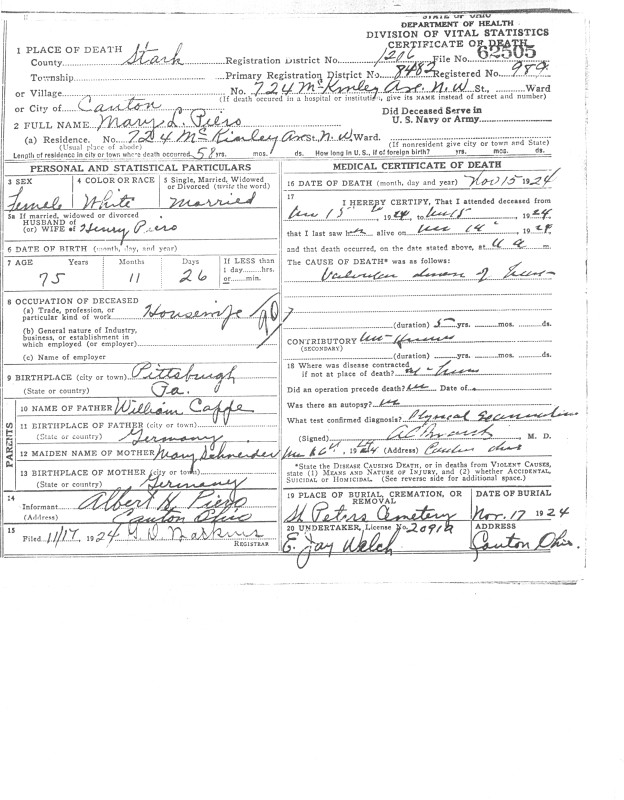 STATE OF OHIO
DEPARTMENT OF HEALTH
DIVISION OF VITAL STATISTICS
CERTIFICATE OF DEATH
1 PLACE OF DEATH
County Stark Registration District No. 1206 File No. 62505
Township Primary Registration District No. 8482 Registered No. 989
or Village No. 724 McKinley Ave. N.W St., Ward
(If death occured in a hospital or institution, give its NAME instead of street and number)
or City of Canton
Did Deceased Serve in
U. S. Navy or Army
2 FULL NAME Mary L. Piero
(a) Residence. No. 724 McKinley Ave St. N.W Ward.
(Usual place of abode) (If nonresident give city or town and State)
Length of residence in city or town where death occurred 58 yrs. mos. ds. How long in U. S., if of foreign birth? yrs. mos. ds.
PERSONAL AND STATISTICAL PARTICULARS
3 SEX Female
4 COLOR OR RACE White
5 Single, Married, Widowed or Divorced (write the word) Married
5a If married, widowed or divorced
HUSBAND of
(or) WIFE of Henry Piero
6 DATE OF BIRTH (month, day, and year)
7 AGE Years Months Days If LESS than
1 day hrs.
or min.
75 11 26
8 OCCUPATION OF DECEASED
(a) Trade, profession, or
particular kind of work Housewife
(b) General nature of Industry,
business, or establishment in
which employed (or employer)
(c) Name of employer
9 BIRTHPLACE (city or town) Pittsburgh
(State or country) Pa.
PARENTS
10 NAME OF FATHER William Cappe
11 BIRTHPLACE OF FATHER (city or town)
(State or country) Germany
12 MAIDEN NAME OF MOTHER Mary Schneider
13 BIRTHPLACE OF MOTHER (city or town)
(State or country) Germany
14
Informant Albert H Piero
(Address) Canton Ohio
15
Filed 11/17, 1924
REGISTRAR
MEDICAL CERTIFICATE OF DEATH
16 DATE OF DEATH (month, day and year) Nov 15 1924
17
I HEREBY CERTIFY, That I attended deceased from
1924, to 15, 1924
that I last saw h alive on 14, 1924,
and that death occurred, on the date stated above, at a m.
The CAUSE OF DEATH* was as follows:
Valvular disease of
(duration) 5 yrs. mos. ds.
CONTRIBUTORY
(SECONDARY)
(duration) yrs. mos. ds.
18 Where was disease contracted
if not at place of death?
Did an operation precede death? Date of
Was there an autopsy?
What test confirmed diagnosis? Physical Examination
(Signed) M. D.
, 1924 (Address) Canton
*State the DISEASE CAUSING DEATH, or in deaths from VIOLENT CAUSES,
state (1) MEANS AND NATURE OF INJURY, and (2) whether ACCIDENTAL
SUICIDAL or HOMICIDAL. (See reverse side for additional space.)
19 PLACE OF BURIAL, CREMATION, OR
REMOVAL
St Peters Cemetery
DATE OF BURIAL
Nov. 17 1924
20 UNDERTAKER, License No. 2091a
E. Jay Welch
ADDRESS
Canton Ohio.